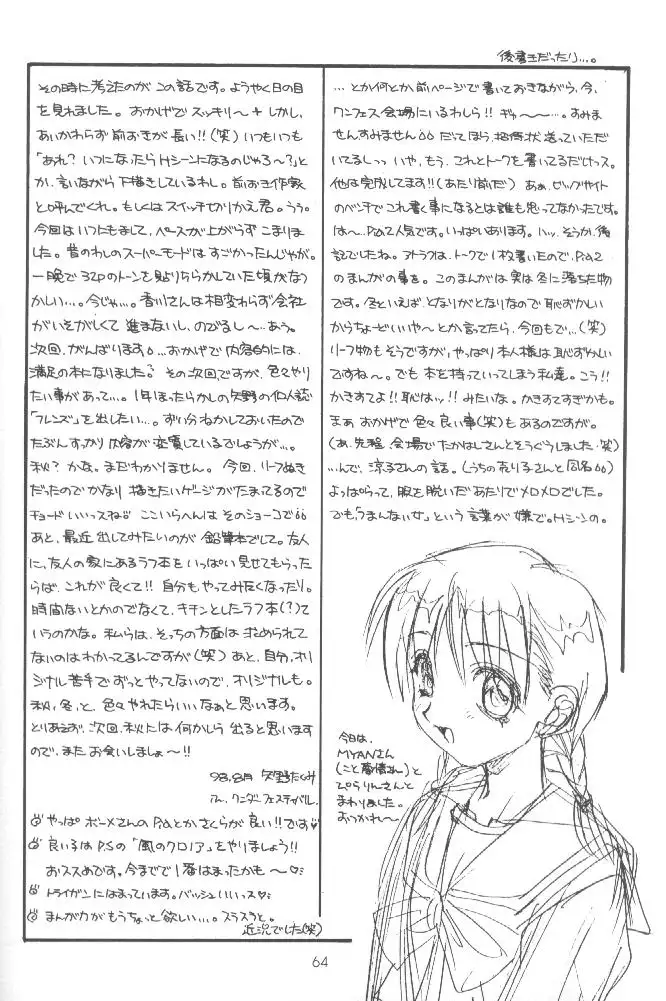 後書きだったり…。
…とか何とか、前ページで書いておきながら、今、
ワンフェス会場にいるわしら!! ギゅ〜〜…。すみま
せんすみません。だってほう、招待状送っていただ
いてるしっっ いや、もう、これとトークを書いてるだけっス。
他は完成してます!!(あたり前だ) あぁ、ビッグサイト
のベンチでこれ書く事になるとは誰も思ってなかったです。
は〜、P.a.2人気です。いっぱいあります。ハッ、そうか、後
記でしたね。アトラフは、トークで1枚書いたので、P.a.2
のまんがの事を。このまんがは実は冬に落ちた物
です。冬といえば、となりがとなりなので恥ずかしい
からちょーどいいや〜とか言ってたら、今回もで…(笑)
リーフ物もそうですが、やっぱり本人様は恥ずかしい
ですね〜。でも本を持っていってしまう私達。こう!!
かきすてよ!!恥はッ!!みたいな。かきすてすぎかも。
まぁおかげで色々良い事(笑)もあるのですが。
(あ、先程、会場でたかはしさんとそうぐうしました・笑)
…んで、涼子さんの話。(うちの売り子さんと同名)
よっぱらって、服を脱いだあたりでメロメロでした。
でも「つまんない女」という言葉が嫌で。Hシーンの。
その時に考えたのがこの話です。ようやく日の目
を見れました。おかげでスッキリ〜+しかし、
あいかわらず前おきが長い!!(笑)いつもいつも
「あれ?いつになったらHシーンになるのじゃろ〜?」と
か、言いながら下描きしているわし。前おき作家
と呼んでくれ。もしくはスイッチきりかえ君。うう。
今回はいつにもまして、ペースが上がらずこまりま
した。昔のわしのスーパーモードはすごかったんじゃが。
一晩で32Pのトーンを貼りちらかしていた頃がなつ
かしい…。今じゃ…。香川さんは相変わらず会社
がいそがしくて進まないし、のびるし〜、あう。
次回、がんばります。…おかげで内容的には、
満足の本になりました。その次回ですが、色々やり
たい事があって…。1年ほったらかしの矢野の個人誌
「フレンズ」を出したい…。ずい分ねかしておいたので
たぶんすっかり内容が変質しているでしょうが…。
秋?かな。まだわかりません。今回、リーフぬき
だったのでかなり描きたいゲージがたまってるので
チョードいいっスね。ここいらへんはそのショーコで
あと、最近出してみたいのが鉛筆本でして。友人
に、友人の家にあるラフ本をいっぱい見せてもらった
らば、これが良くて!!自分もやってみたくなったり。
時間ないとかのでなくて、キチンとしたラフ本(?)て
いうのかな。私らは、そっちの方面は求められて
ないのはわかってるんですが(笑)あと、自分、オリ
ジナル苦手でずっとやってないので、オリジナルも。
秋、冬、と、色々やれたらいいなぁと思います。
とりあえず、次回、秋には何かしら出ると思います
ので、またお会いしましょ〜!!
98.8月 矢野たくみ
アム、ワンダーフェスティバル。
やっぱボーメさんのP.aとかさくらが良い!!です♥
良いろはP.Sの「風のクロノア」をやりましょう!!
おススめです。今までで1番はまったかも〜♡
トライガンにはまっています。バッシュいいっス♡
まんが力がもうちょっと欲しい…。スラスラと。
近況でした(笑)
今日は、
MYANさん
ぴらりんさんと
まわりました。
おつかれ〜
64